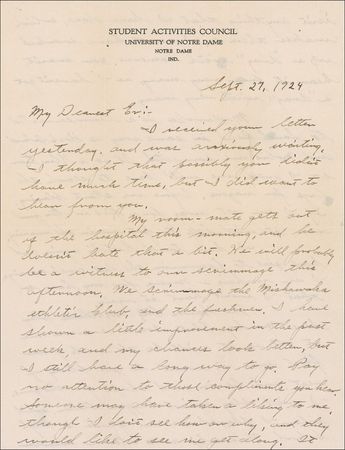 STUDENT ACTIVITIES COUNCIL
UNIVERSITY OF NOTRE DAME
NOTRE DAME
IND.
Sept. 27, 1924
My Dearest Ev:-
I received your letter
yesterday, and was anxiously waiting.
I thought that possibly you didn't
have much time, but I did want to
hear from you.
My room-mate gets out
of the hospital this morning, and he
doesn't hate that a bit. We will probably
be a witness to our scrimmage this
afternoon. We scrimmage the Mishawaka
athletic club, and the freshmen. I have
shown a little improvement in the past
week, and my chances look better, but
I still have a long way to go. Pay
no attention to those compliments you hear
someone may have taken a liking to me
though I don't see how or why, and they
would like to see me get along. It